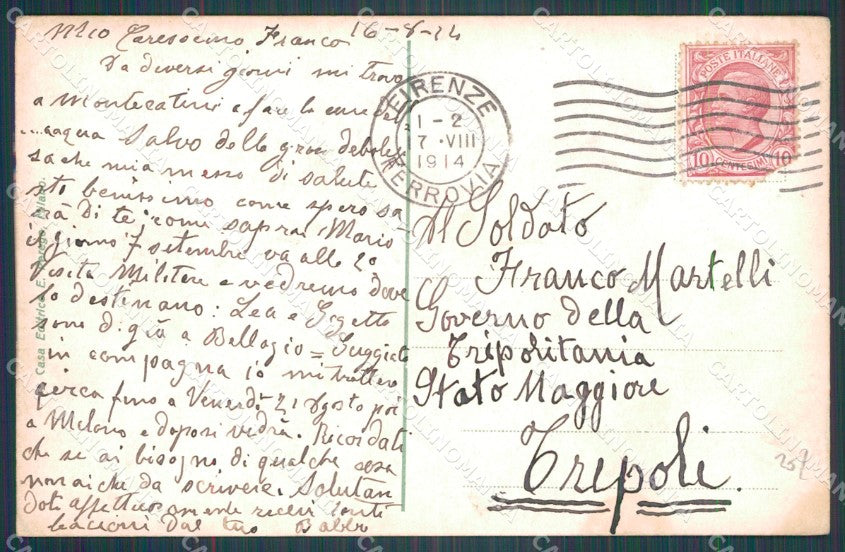 Mio Carissimo Franco 16-8-14
Da diversi giorni mi trovo
a Montecatini e fare la cura dell
acqua Salvo della gran debolez
sa che mia messo di salute
sto benissimo come spero sa
rà Di te come saprai Mario
il giorno 7 setembre va alla 2ª
Visita Militere e vedremo dove
lo destinano: Lea e Gigetto
sono di già a Bellagio =
in compagna io mi tratterò
circa fino a Venerdì 21 Agosto poi
a Melano e doposi vedrà. Ricordati
che se ai bisogno di qualche cosa
non ai che da scrivere. Solutan
doti affettuosamente recevi tanti
bacioni dal tuo
Casa Editrice E.
FIRENZE
1-2
17 · VIII
1914
FERROVIA
POSTE ITALIANE
10 CENTESIMI 10
Al Soldato
Franco Martelli
Governo della
Tripolitania
Stato Maggiore
Trepoli.
CARTOLINOMANIA